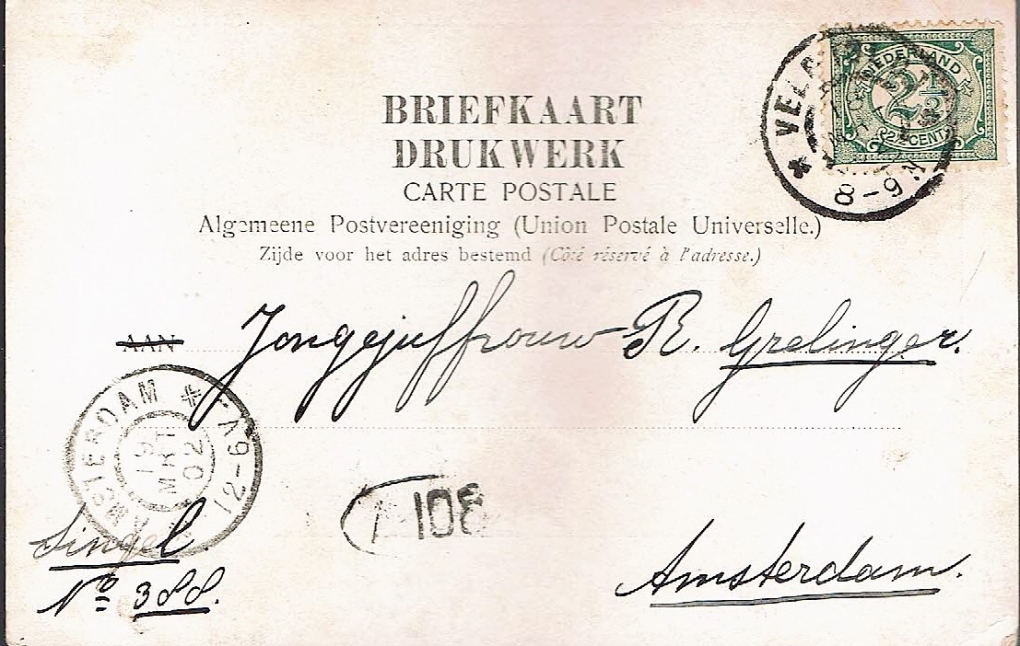 BRIEFKAART
DRUKWERK
CARTE POSTALE
Algemeene Postvereeniging (Union Postale Universelle.)
Zijde voor het adres bestemd (Côté réservé à l'adresse.)
NEDERLAND
2½
2½ CENT
8-9 N
AAN
Jongejuffrouw R. Grelinger.
AMSTERDAM
19
MRT
02
108
Singel
No 388.
Amsterdam.